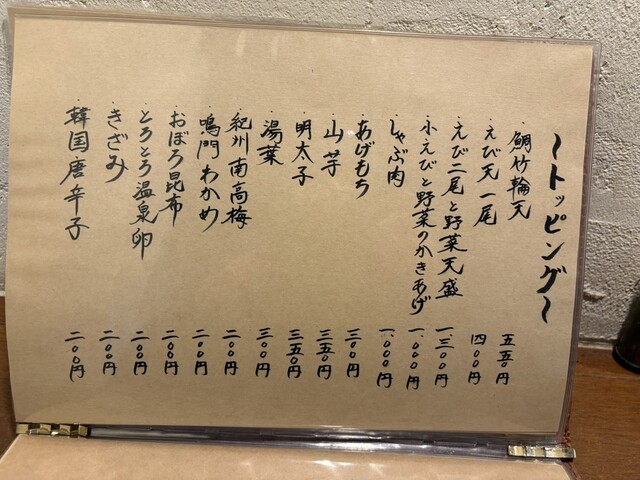 〜トッピング〜
・鯛竹輪天 五五〇円
・えび天一尾 四〇〇円
・えび二尾と野菜天盛 一、三〇〇円
・小えびと野菜のかきあげ 一、〇〇〇円
・しゃぶ肉 一、〇〇〇円
・あげもち 三〇〇円
・山芋 三五〇円
・明太子 三五〇円
・湯葉 三〇〇円
・紀州南高梅 二〇〇円
・鳴門わかめ 二〇〇円
・おぼろ昆布 二〇〇円
・とろとろ温泉卵 二〇〇円
・きざみ 二〇〇円
・韓国唐辛子 二〇〇円